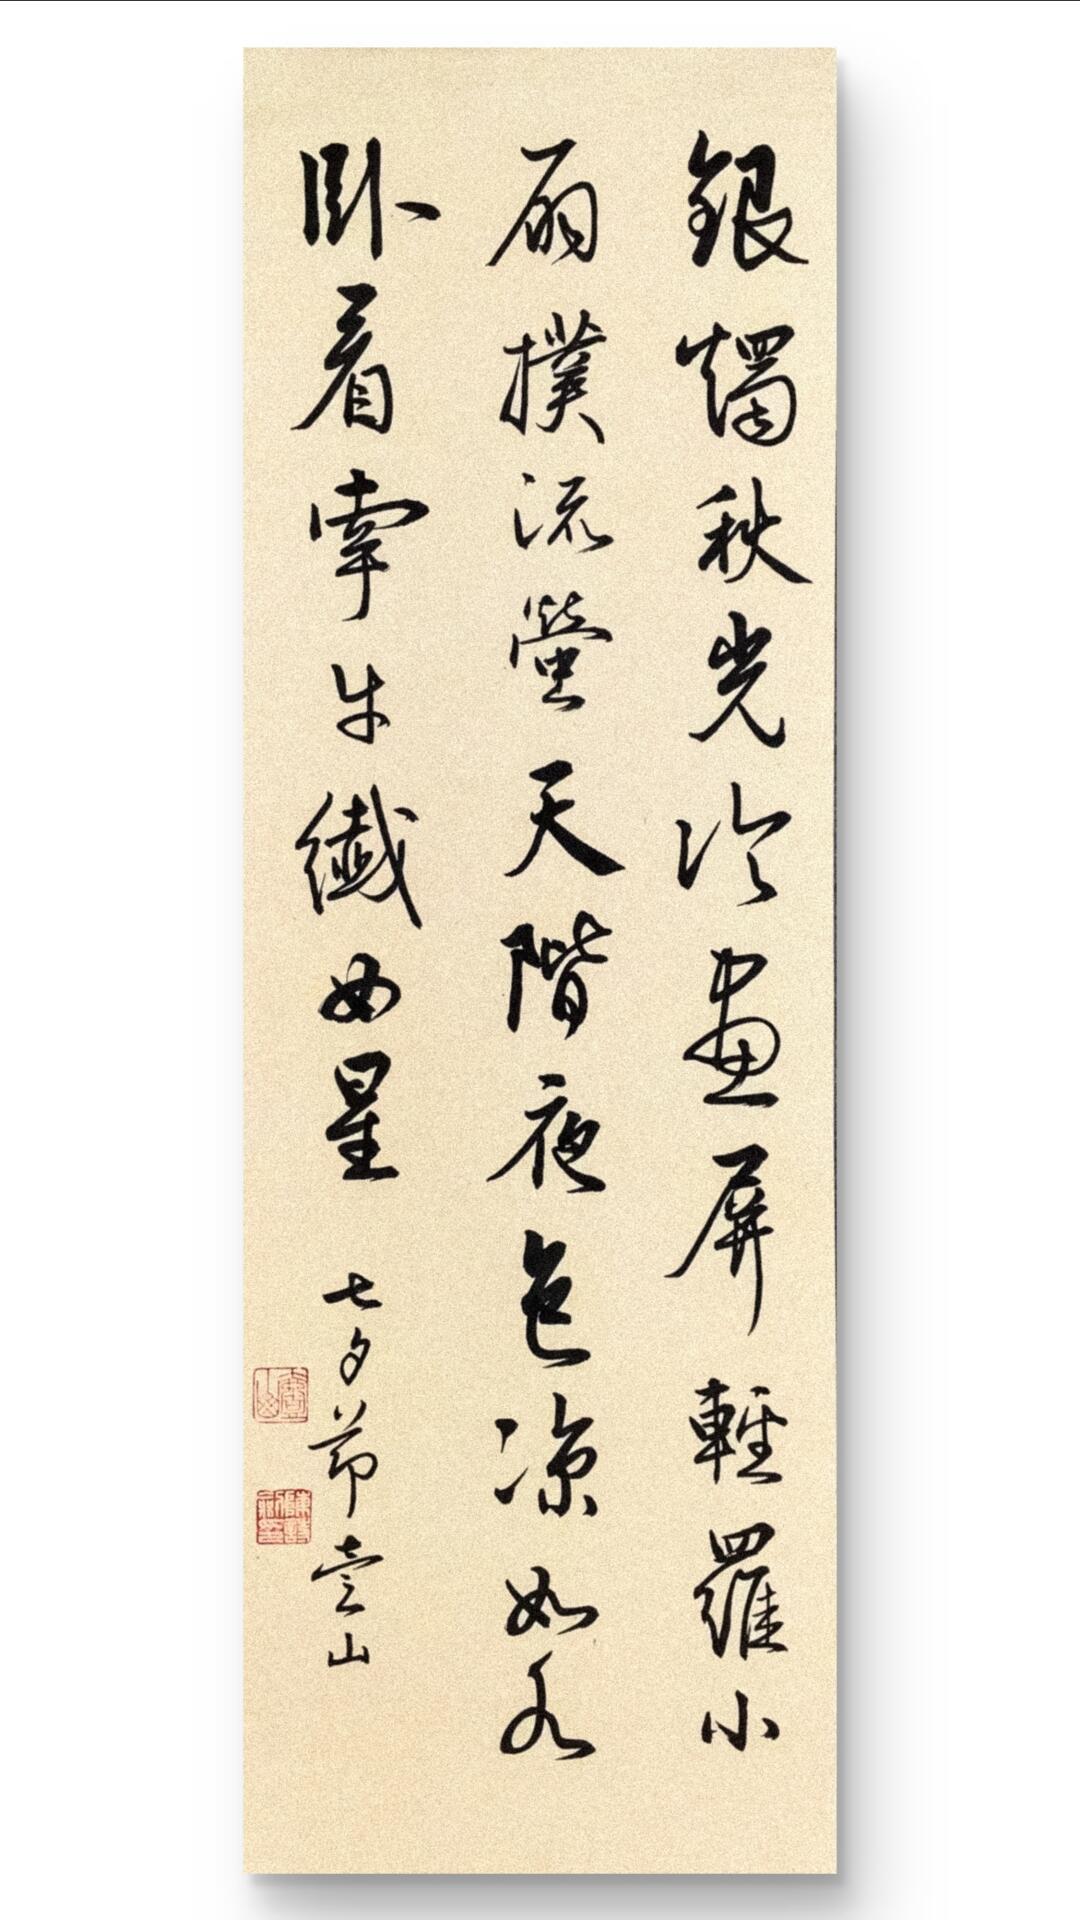 銀燭秋光冷畫屏輕羅小
扇撲流螢天階夜色凉如水
卧看牽牛織女星
七夕節壹山